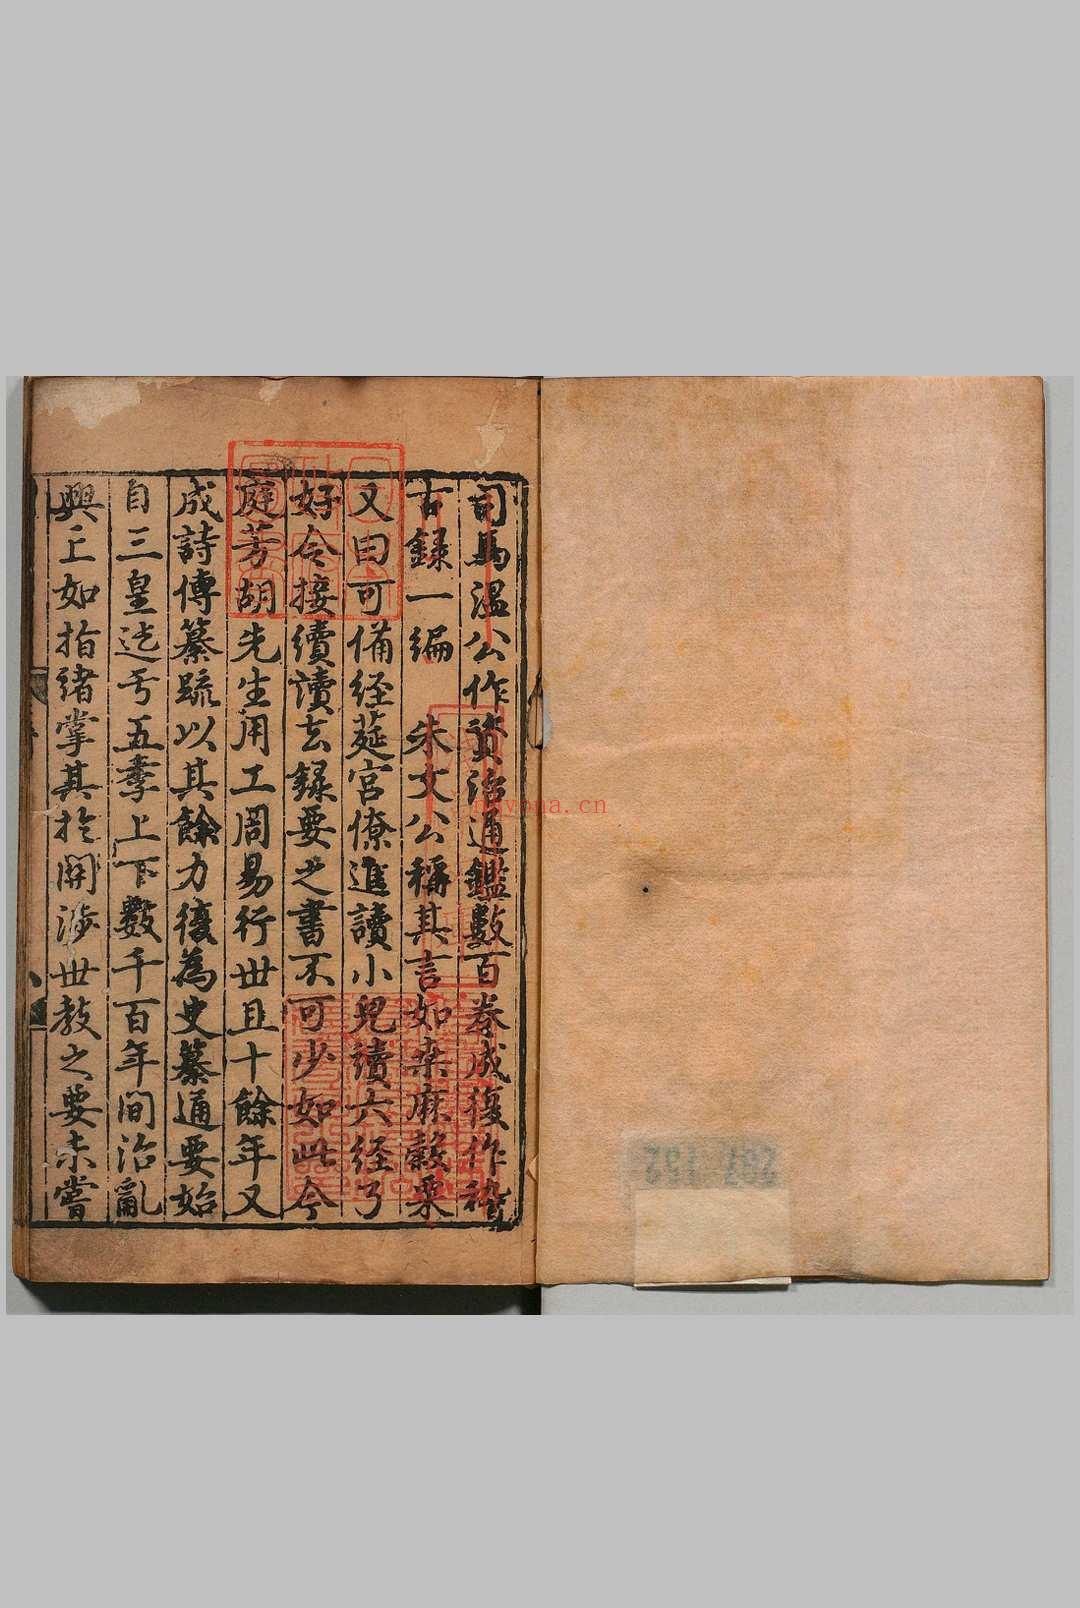 司馬温公作資治通鑑數百卷成復作稽
古録一編　朱文公稱其言如桒麻穀粟
又曰可備経莚宮僚進讀小兒讀六経了
好令接續讀去録要之書不可少如此今
庭芳胡先生用工周易行丗且十餘年又
成詩傳纂疏以其餘力復為史纂通要始
自三皇迄于五季上下數千百年間治亂
興亡如指諸掌其扵開涉丗教之要未嘗
nuyona.cn
297 152